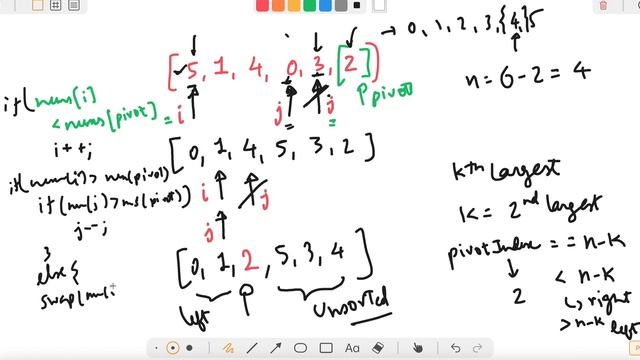 → 0, 1, 2, 3, {4,} 5
[5, 1, 4, 0, 3, [2])
n = 6 - 2 = 4
if(nums[i]
< nums[pivot]
= i
j
j
=
=
pivot
i++;
[0, 1, 4, 5, 3, 2]
if(num(i) > nm(pivot)
if(nm(j) > ms(pivot))
j--;
i
j
j
}
else{
swap(nu(i
[0, 1, 2, 5, 3, 4]
left
unsorted
Kth largest
K = 2nd largest
pivotIndex == n-K
2
< n-K
↳ right
> n-K left
Aa